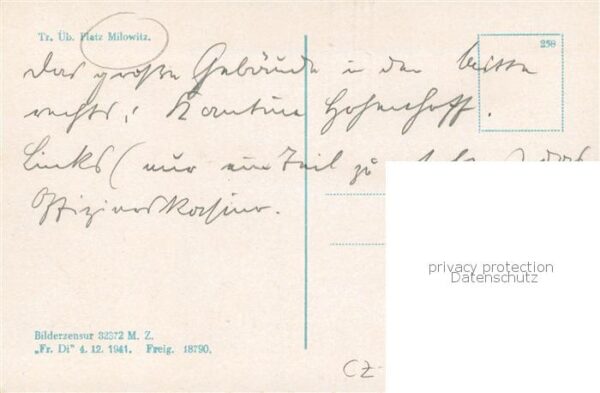 Tr. Üb. Platz Milowitz.
258
Das große Gebäude in der Mitte
rechts: Kantine Hohenhoff.
Links (nur ein Teil zu sehen) das
Offizierskasino.
privacy protection
Datenschutz
Bilderzensur 32372 M. Z.
„Fr. Di" 4. 12. 1941. Freig. 18790.
CZ